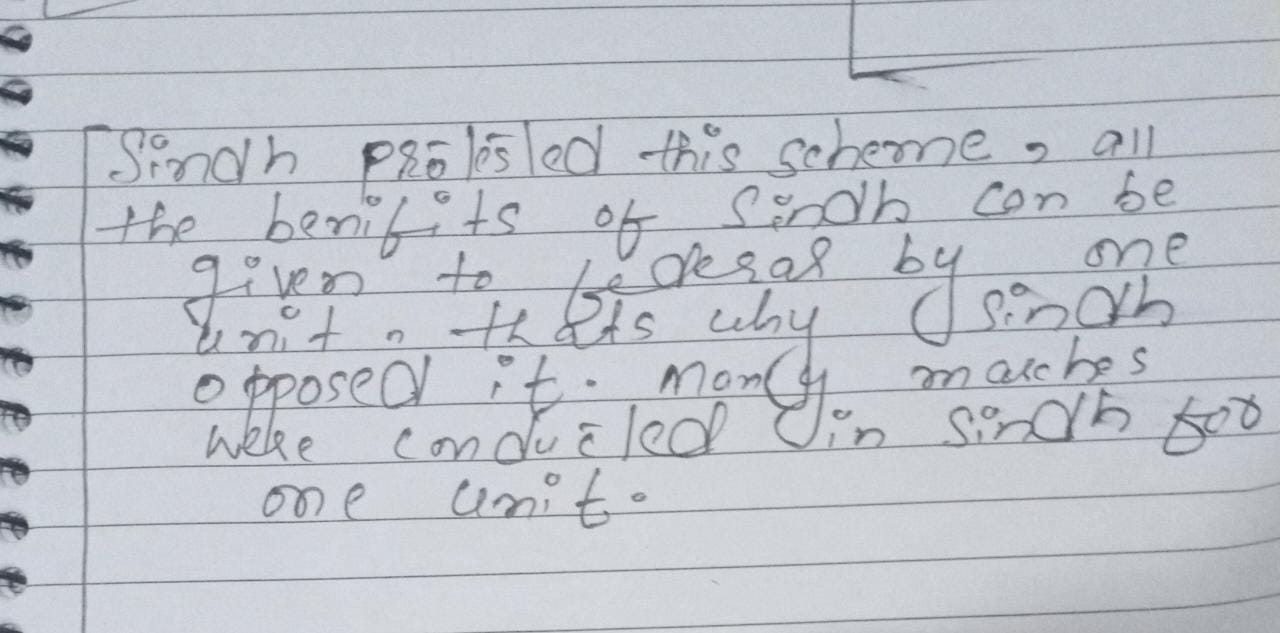 Sindh protested this scheme, all
the benifits of Sindh can be
given to federal by one
unit, thats why Sindh
opposed it. Many marches
were conducted in Sindh for
one unit.